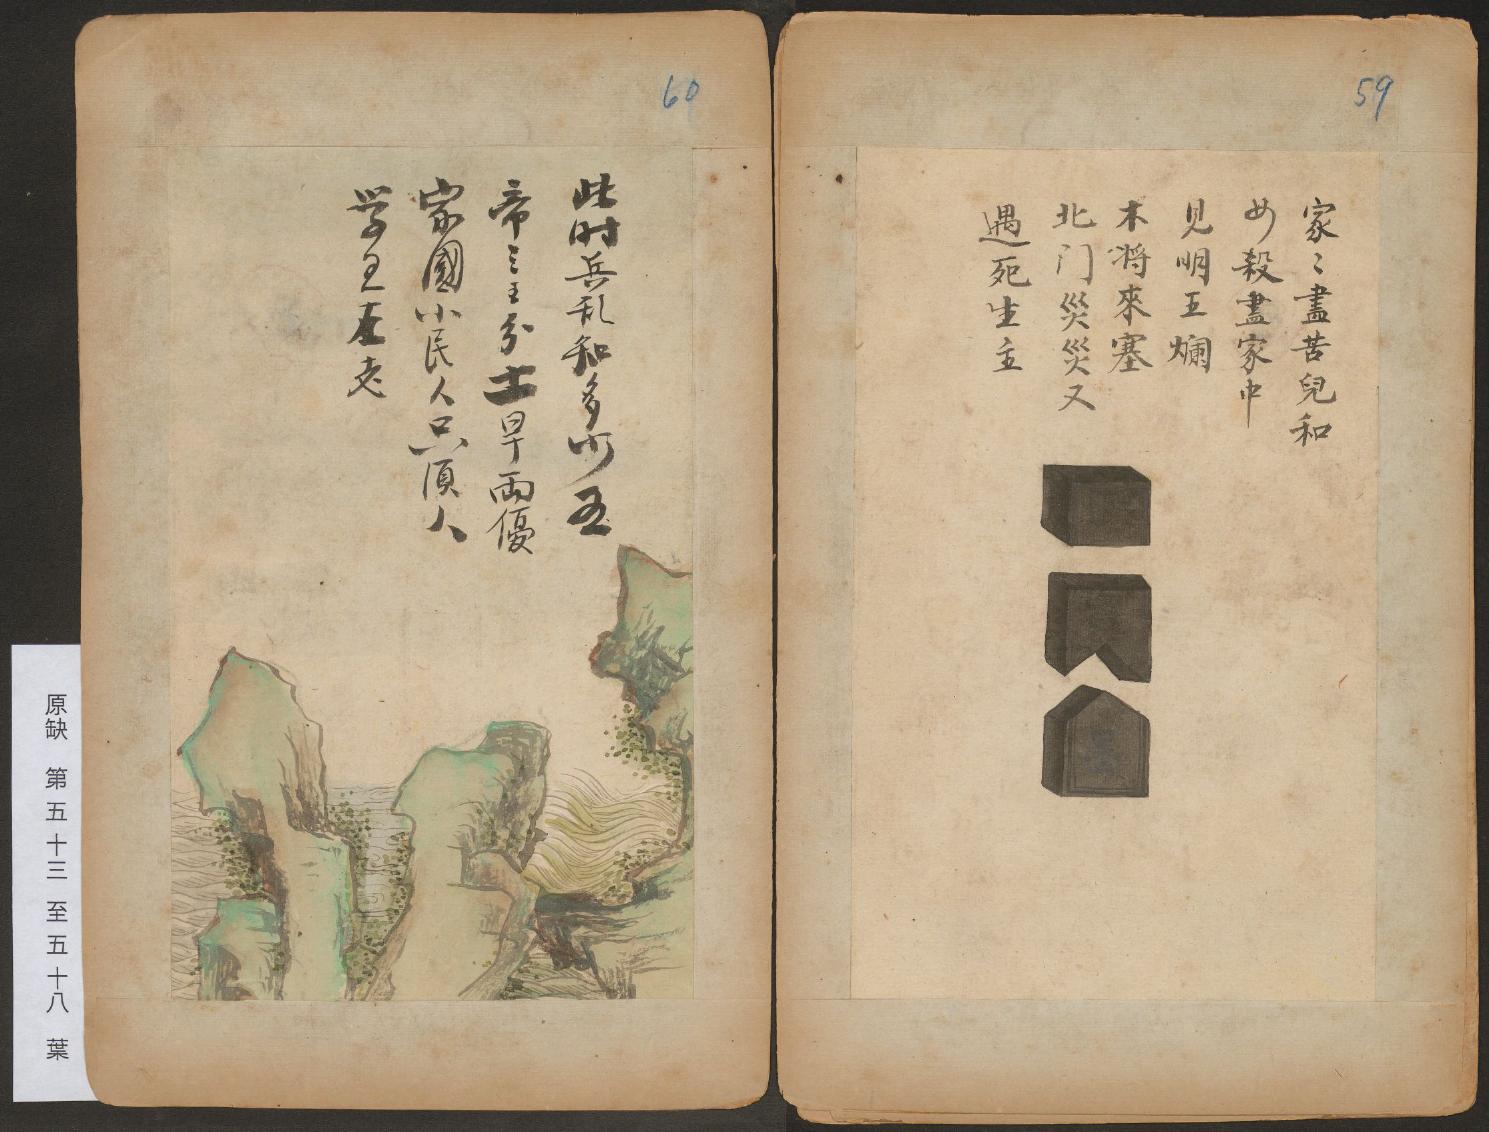 59
家〻盡苦兒和
女殺盡家中
見明五爛
木將來塞
北门災災又
遇死生主
60
此时兵乱知多少
帝王分土早雨優
家國小民人只須人
原缺 第五十三至五十八葉